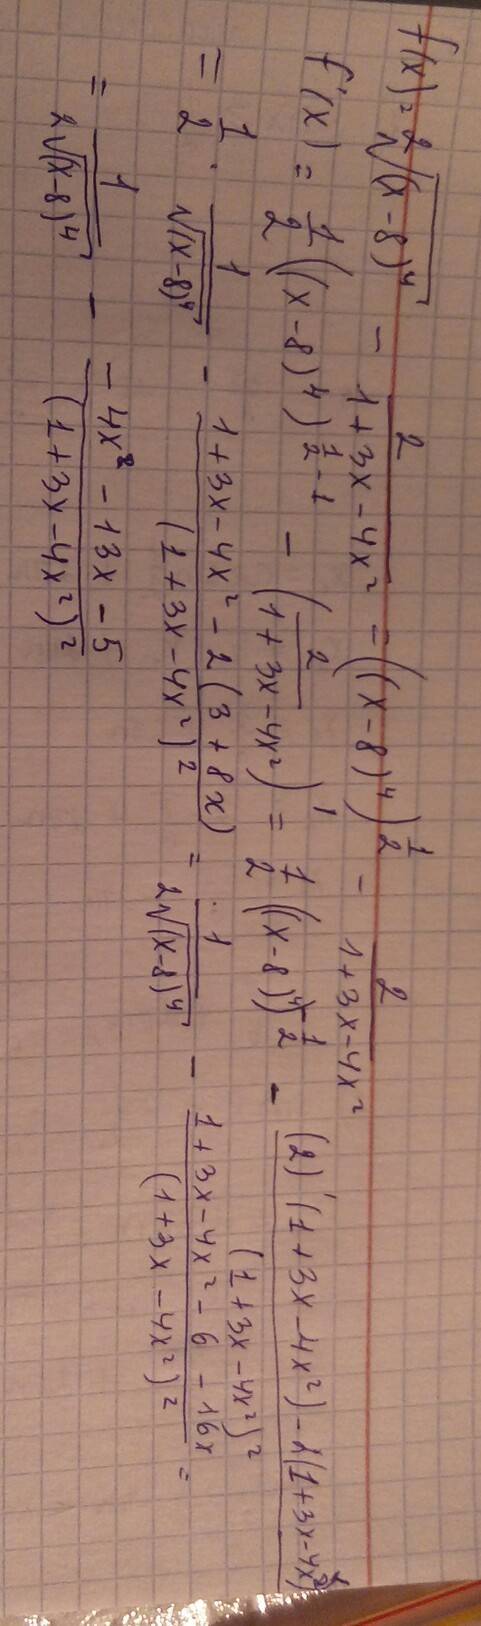 f(x) = ²√(x-8)⁴ - 2/(1+3x-4x²) = ((x-8)⁴)^(1/2) - 2/(1+3x-4x²)
f'(x) = 1/2 ((x-8)⁴)^(1/2 - 1) - (2/(1+3x-4x²))' = 1/2 ((x-8)⁴)^(-1/2) - ((2)'(1+3x-4x²) - 2(1+3x-4x²)')/(1+3x-4x²)²
= 1/2 · 1/√(x-8)⁴ - (1+3x-4x² - 2(3+8x))/(1+3x-4x²)² = 1/(2√(x-8)⁴) - (1+3x-4x²-6-16x)/(1+3x-4x²)² =
= 1/(2√(x-8)⁴) - (-4x² - 13x - 5)/(1+3x-4x²)²